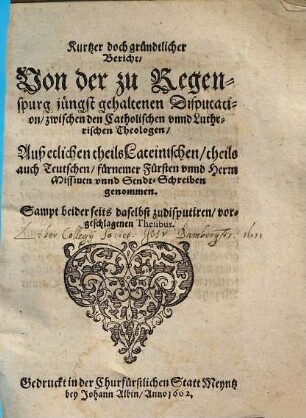 Kurtzer doch gründtlicher
Bericht/
Von der zu Regen-
spurg jüngst gehaltenen Disputati-
on/zwischen den Catholischen vnnd Luthe-
rischen Theologen/
Auß etlichen theils Lateinischen/ theils
auch Teutschen/ fürnemer Fürsten vnnd Herrn
Missiuen vnnd Sendt-Schreiben
genommen.
Sampt beider seits daselbst zu disputiren/ vor-
geschlagenen Thesibus.
Collegij Societ. Jesu Bambergæ. 1611
Gedruckt in der Churfürstlichen Statt Meyntz
bey Johann Albin/ Anno 1602.